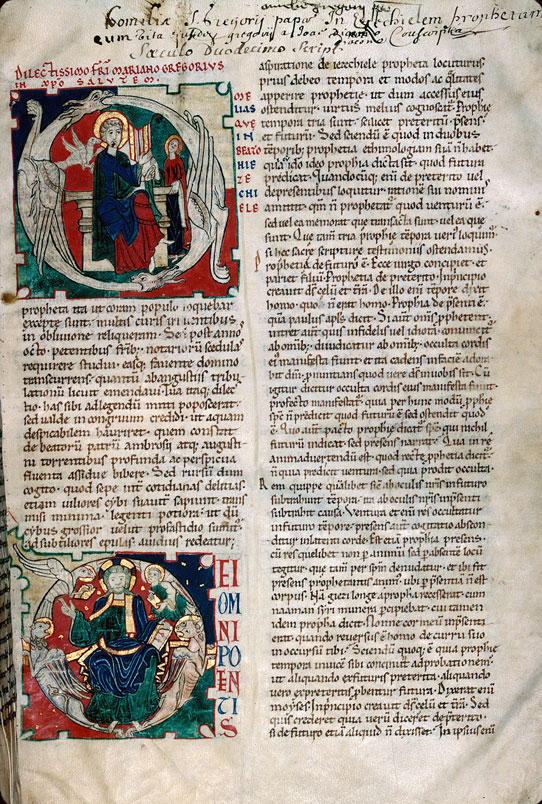 Homiliæ S. Gregorij papæ In Ezechielem prophetam
cum Vita ejusdem gregorij a Joanne Diacono Conscripta
Sæculo Duodecimo Script.
DILECTISSIMO FRI MARIANO GREGORIUS
IN XPO SALUTEM.
OMELIAS
QVE
IN
BEATO
HIE
ZE
CHI
ELE
propheta ita ut coram populo loquebar
excepte sunt. multis curis irruentibus
in oblivione reliqueram. Sed post anno
octo. petentibus frīb; notariorū scedulas
requirere studui. easq; favente domino
transcurrens. quantū ab angustiis tribu
lationū licuit emendavi. Tua itaq; dilec
tio has sibi ad legendū mitti poposcerat.
sed valde in congruum credidi ut aquam
despicabilem hauriret. quem constat
de beatorū patrū ambrosii atq; augusti
ni torrentibus profunda ac perspicua
fluenta assidue bibere. Sed rursū dum
cogito. quod sepe int cotidianas delitias.
etiam viliores cybi suaviter sapiunt. trans
misi minima legenti potiora. ut dū
cybus grossior velut pro fastidio sumit.
ad subtiliores epulas avidius redeatur;
DEI
OM
NI
PO
EN
TI
S
aspiratione de iezechiele propheta locuturus.
prius debeo tempora et modos ac qualitates
aperire prophetie. ut dum accessus eius
ostenditur. virtus melius cognoscatur. Prophetie
tempora tria sunt. scilicet preteritū. presens.
et futurū. Sed sciendū ē quod in duobus
tēporib; prophetia ethimologiam suā n̄ habet.
quia ideo prophetia dicta sit. quod futura
predicat. Quando eni de preterito vel
de presentibus loquitur. rationē sui nominis
amittit. qm̄ n̄ prophetat quod venturū ē.
sed vel ea memorat que transacta sunt. vel ea que
sunt. Que tam tria prophetie tēpora veraciter loquimur.
si hec sacre scripture testimoniis ostendamus.
Prophetia de futuro ē. Ecce virgo concipiet. et
pariet filiū. Prophetia de preterito. In principio
creavit ds celū et trā. De illo eni tēpore dixit
homo. quo n̄ erat homo. Prophetia de presenti ē.
qua paulus apls dicit. Si aut omis prophetent.
intret aut quis infidelis vel idiota. convincitur
ab omib; diiudicatur ab omib; occulta cordis
ei manifesta fiunt. et ita cadens in faciē adora
bit dm̄. pronuntians quod vere ds in vobis sit. Cū
igitur dicitur occulta cordis eius manifesta fiunt.
profecto manifestatur. quia per hunc modū prophetie
sps n̄ predicit quod futurū ē. sed ostendit quod
ē. Quo aut pacto prophetie dicitur sps qui nichil
futurū indicat. sed presens narrat. Qua in re
animadvertendū est. quod recte prophetia dicitur.
n̄ quia predicit ventura. sed quia prodit occulta.
Rem quippe quālibet sic ab oculis nris in futuro
subtrahunt tēpora. ita ab oculis nris in presenti
subtrahit causa. Ventura etenim res occultatur
in futuro tēpore. presens aut cogitatio abscon
ditur in latenti corde. Est etiā prophetia presens.
cū res quelibet non p animū. sed p absentē locū
tegitur. que tam per spm denudatur. et ibi fit
presens prophetantis animus. ubi p presentiā n̄ est
corpus. Nā gieti longe a propheta recesserat. cum
naaman syri munera percipiebat. cui tamen
idem propheta dicit. Nonne cor meū in presenti
erat. quando reversus ē homo de curru suo
in occursū tibi. Sciendū quoq; ē quia prophetie
tempora invicē sibi concinunt ad probationem.
ut aliquando ex futuris preterita. aliquando
vero ex preteritis probentur futura. Dixerat eni
moyses. In principio creavit ds celū et trā. Sed
quis crederet quia verū diceret de preterito.
si de futuro etiā aliquid n̄ dixisset. In ipsius eni